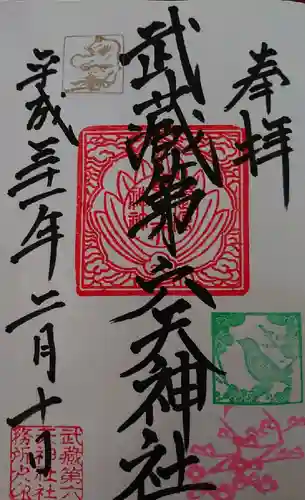 奉拝
武蔵第六天神社
平成三十一年二月十日
武蔵第六
天神社社
務所之印